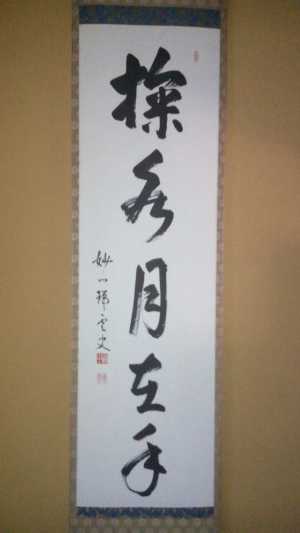 掬水月在手
妙心